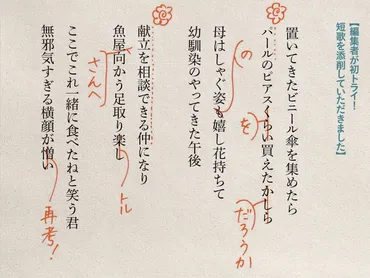 【編集者が初トライ!
短歌を添削していただきました】
置いてきたビニール傘を集めたら
パールのピアスくらい買えたかしら
の
を
だろうか
母はしゃぐ姿も嬉し花持ちて
幼馴染のやってきた午後
献立を相談できる仲になり
魚屋向かう足取り楽し
さんへ
トル
ここでこれ一緒に食べたねと笑う君
無邪気すぎる横顔が憎い
再考!